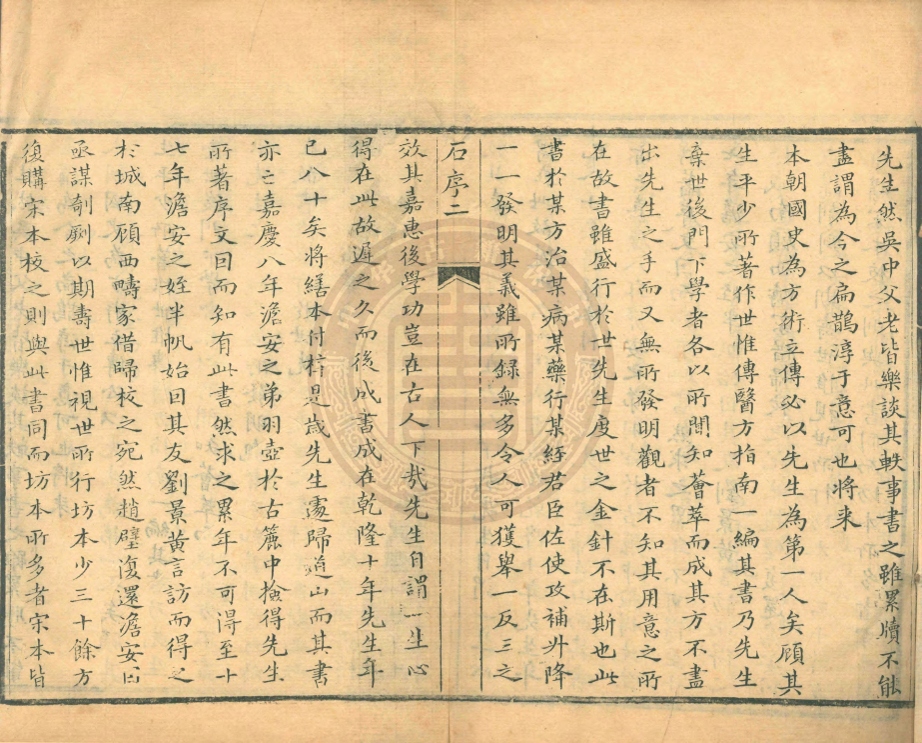 先生然吳中父老皆樂談其軼事書之雖累牘不能
盡謂為今之扁鵲淳于意可也將来
本朝國史為方術立傳必以先生為第一人矣顧其
生平少所著作世惟傳醫方指南一編其書乃先生
棄世後門下學者各以所聞知薈萃而成其方不盡
出先生之手而又無所發明觀者不知其用意之所
在故書雖盛行於世先生度世之金針不在斯也此
書於某方治某病某藥行某經君臣佐使攻補升降
一一發明其義雖所録無多令人可獲舉一反三之
石序二
效其嘉惠後學功豈在古人下哉先生自謂一生心
得在此故遲之久而後成書成在乾隆十年先生年
已八十矣將繕本付梓是歲先生遽歸道山而其書
亦亡嘉慶八年澹安之弟羽壺於古簏中檢得先生
所著序文因而知有此書然求之累年不可得至十
七年澹安之姪半帆始因其友劉景黄言訪而得之
於城南顧西疇家借歸校之宛然趙璧復還澹安因
亟謀剞劂以期壽世惟視世所行坊本少三十餘方
復購宋本校之則與此書同而坊本所多者宋本皆